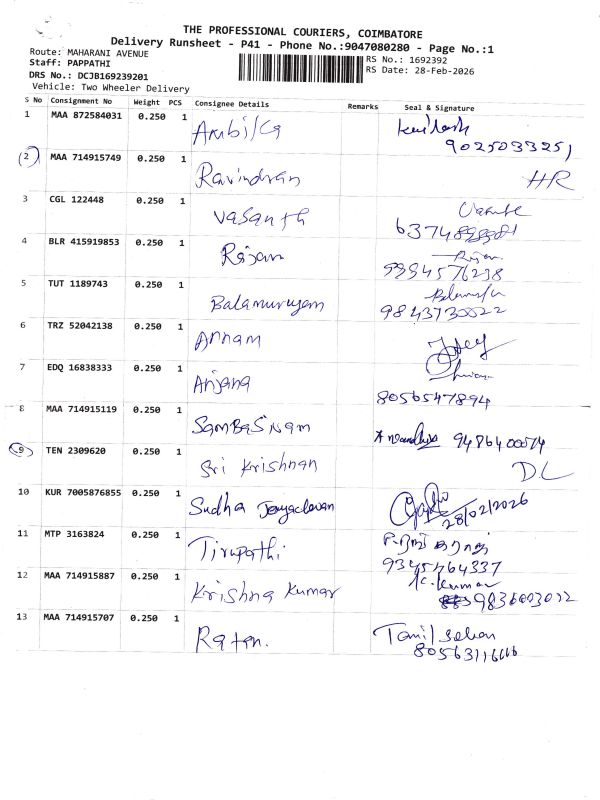 THE PROFESSIONAL COURIERS, COIMBATORE
Delivery Runsheet - P41 - Phone No.:9047080280 - Page No.:1
Route: MAHARANI AVENUE
RS No.: 1692392
Staff: PAPPATHI
RS Date: 28-Feb-2026
DRS No.: DCJB169239201
Vehicle: Two Wheeler Delivery
S No Consignment No Weight PCS Consignee Details Remarks Seal & Signature
1 MAA 872584031 0.250 1 Ambika
9025033251
2 MAA 714915749 0.250 1 Ravindran HR
3 CGL 122448 0.250 1 Vasanth
4 BLR 415919853 0.250 1 Rajan Rajan
9994576238
5 TUT 1189743 0.250 1 Balamurugam
9843730022
6 TRZ 52042138 0.250 1 Annam
7 EDQ 16838333 0.250 1 Anjana
8056547894
8 MAA 714915119 0.250 1 SAMBASIVAM
9 TEN 2309620 0.250 1 Sri Krishnan D.L
10 KUR 7005876855 0.250 1 Sudha Jeyadevan
28/02/2026
11 MTP 3163824 0.250 1 Tirupathi
9345764337
12 MAA 714915887 0.250 1 Krishna Kumar K.Kumar
13 MAA 714915707 0.250 1 Ratan. Tamil selvan